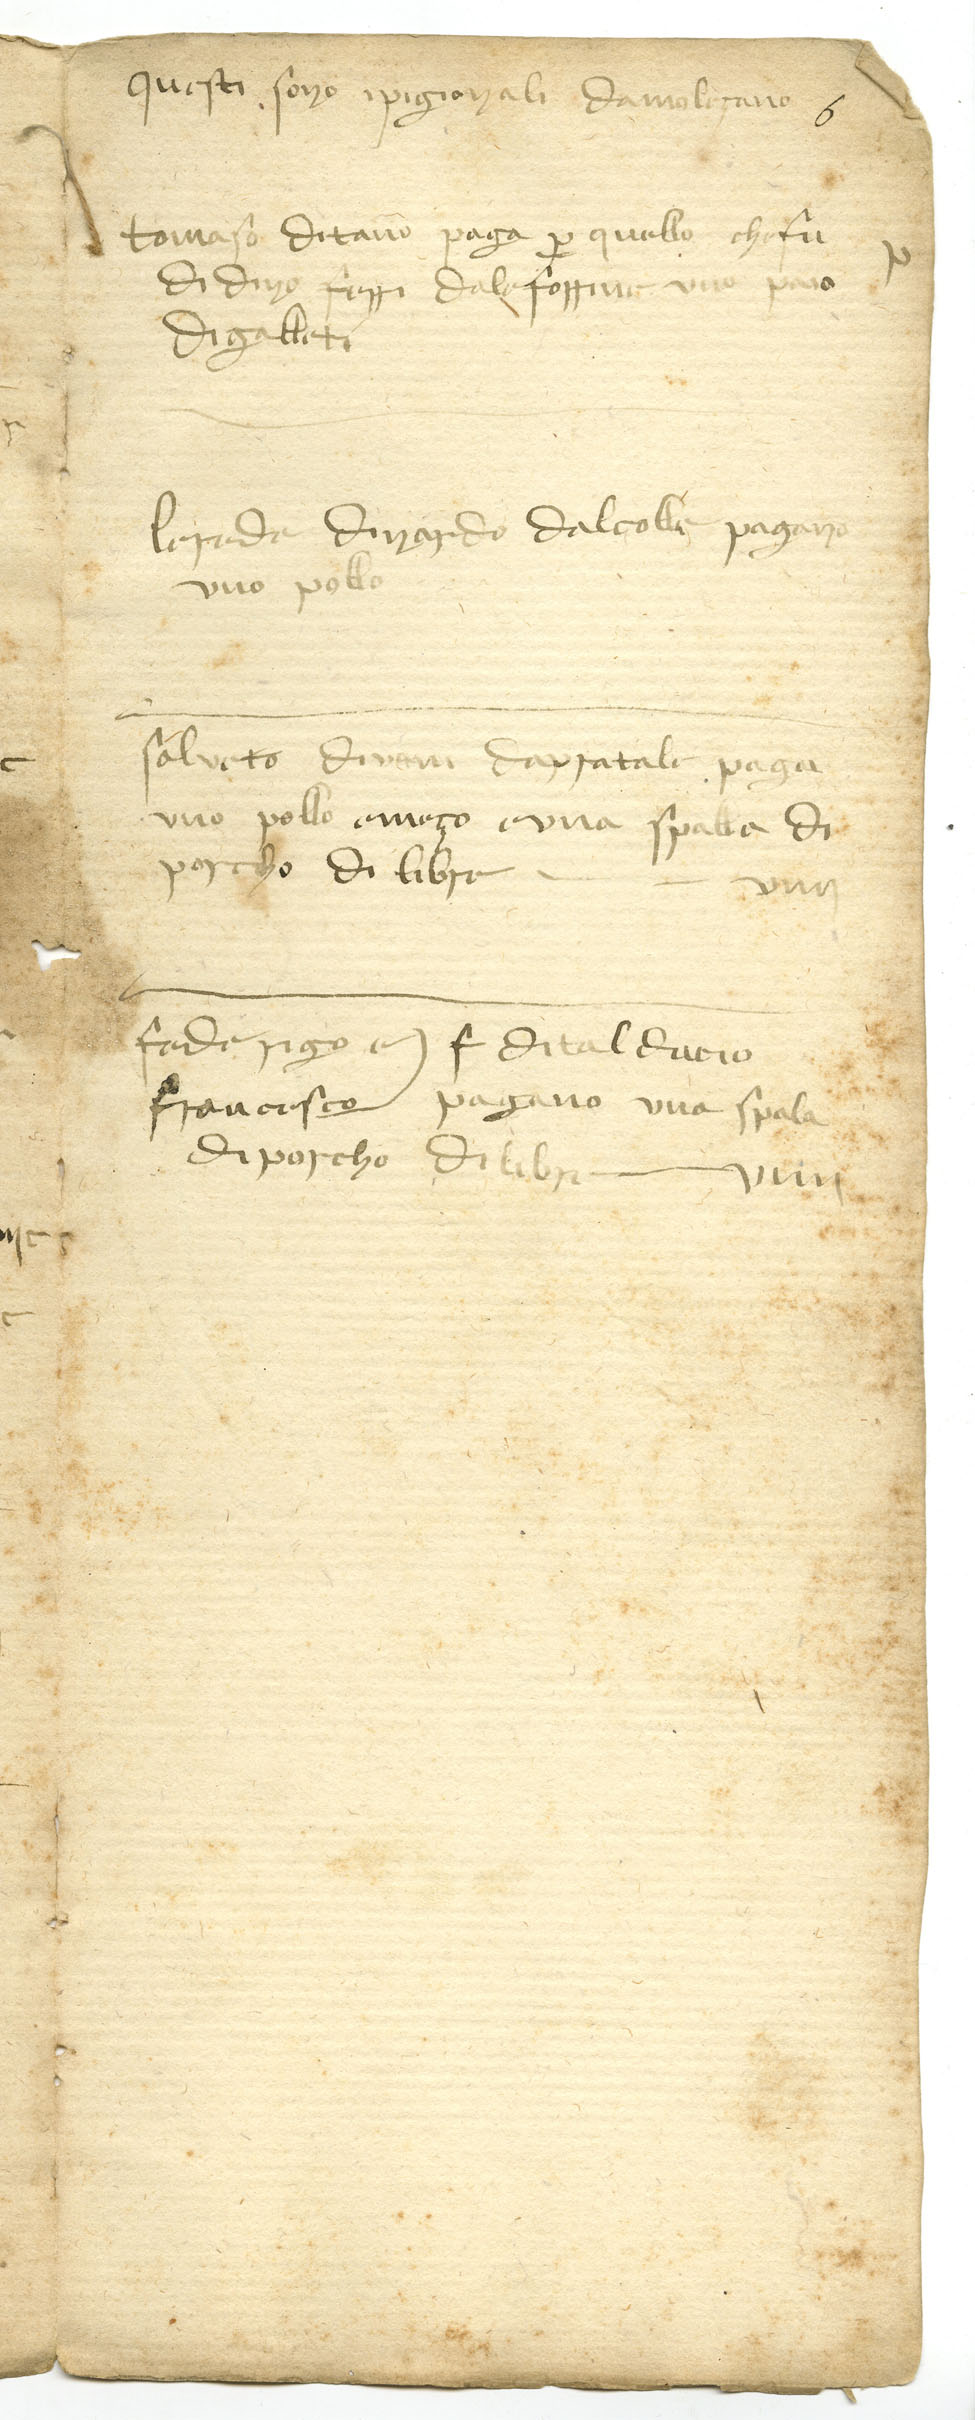 Questi sono ipigionali damoleçano 6
tomaso ditano paga per quello chefu p
di dino dale uno paio
digalleti
lerede dinardo dalcolle pagano
uno pollo
salveto divenni dapratale paga
uno pollo emeço euna spalla di
porcho di libre viiij
federigo e f ditalduccio
francesco pagano una spala
diporcho di libre viiij